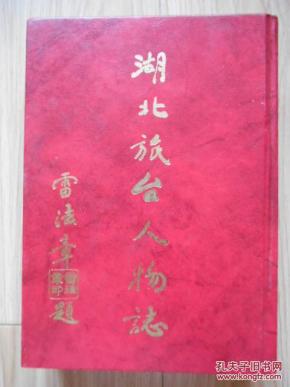 湖北旅台人物誌
雷法章題
孔夫子旧书网